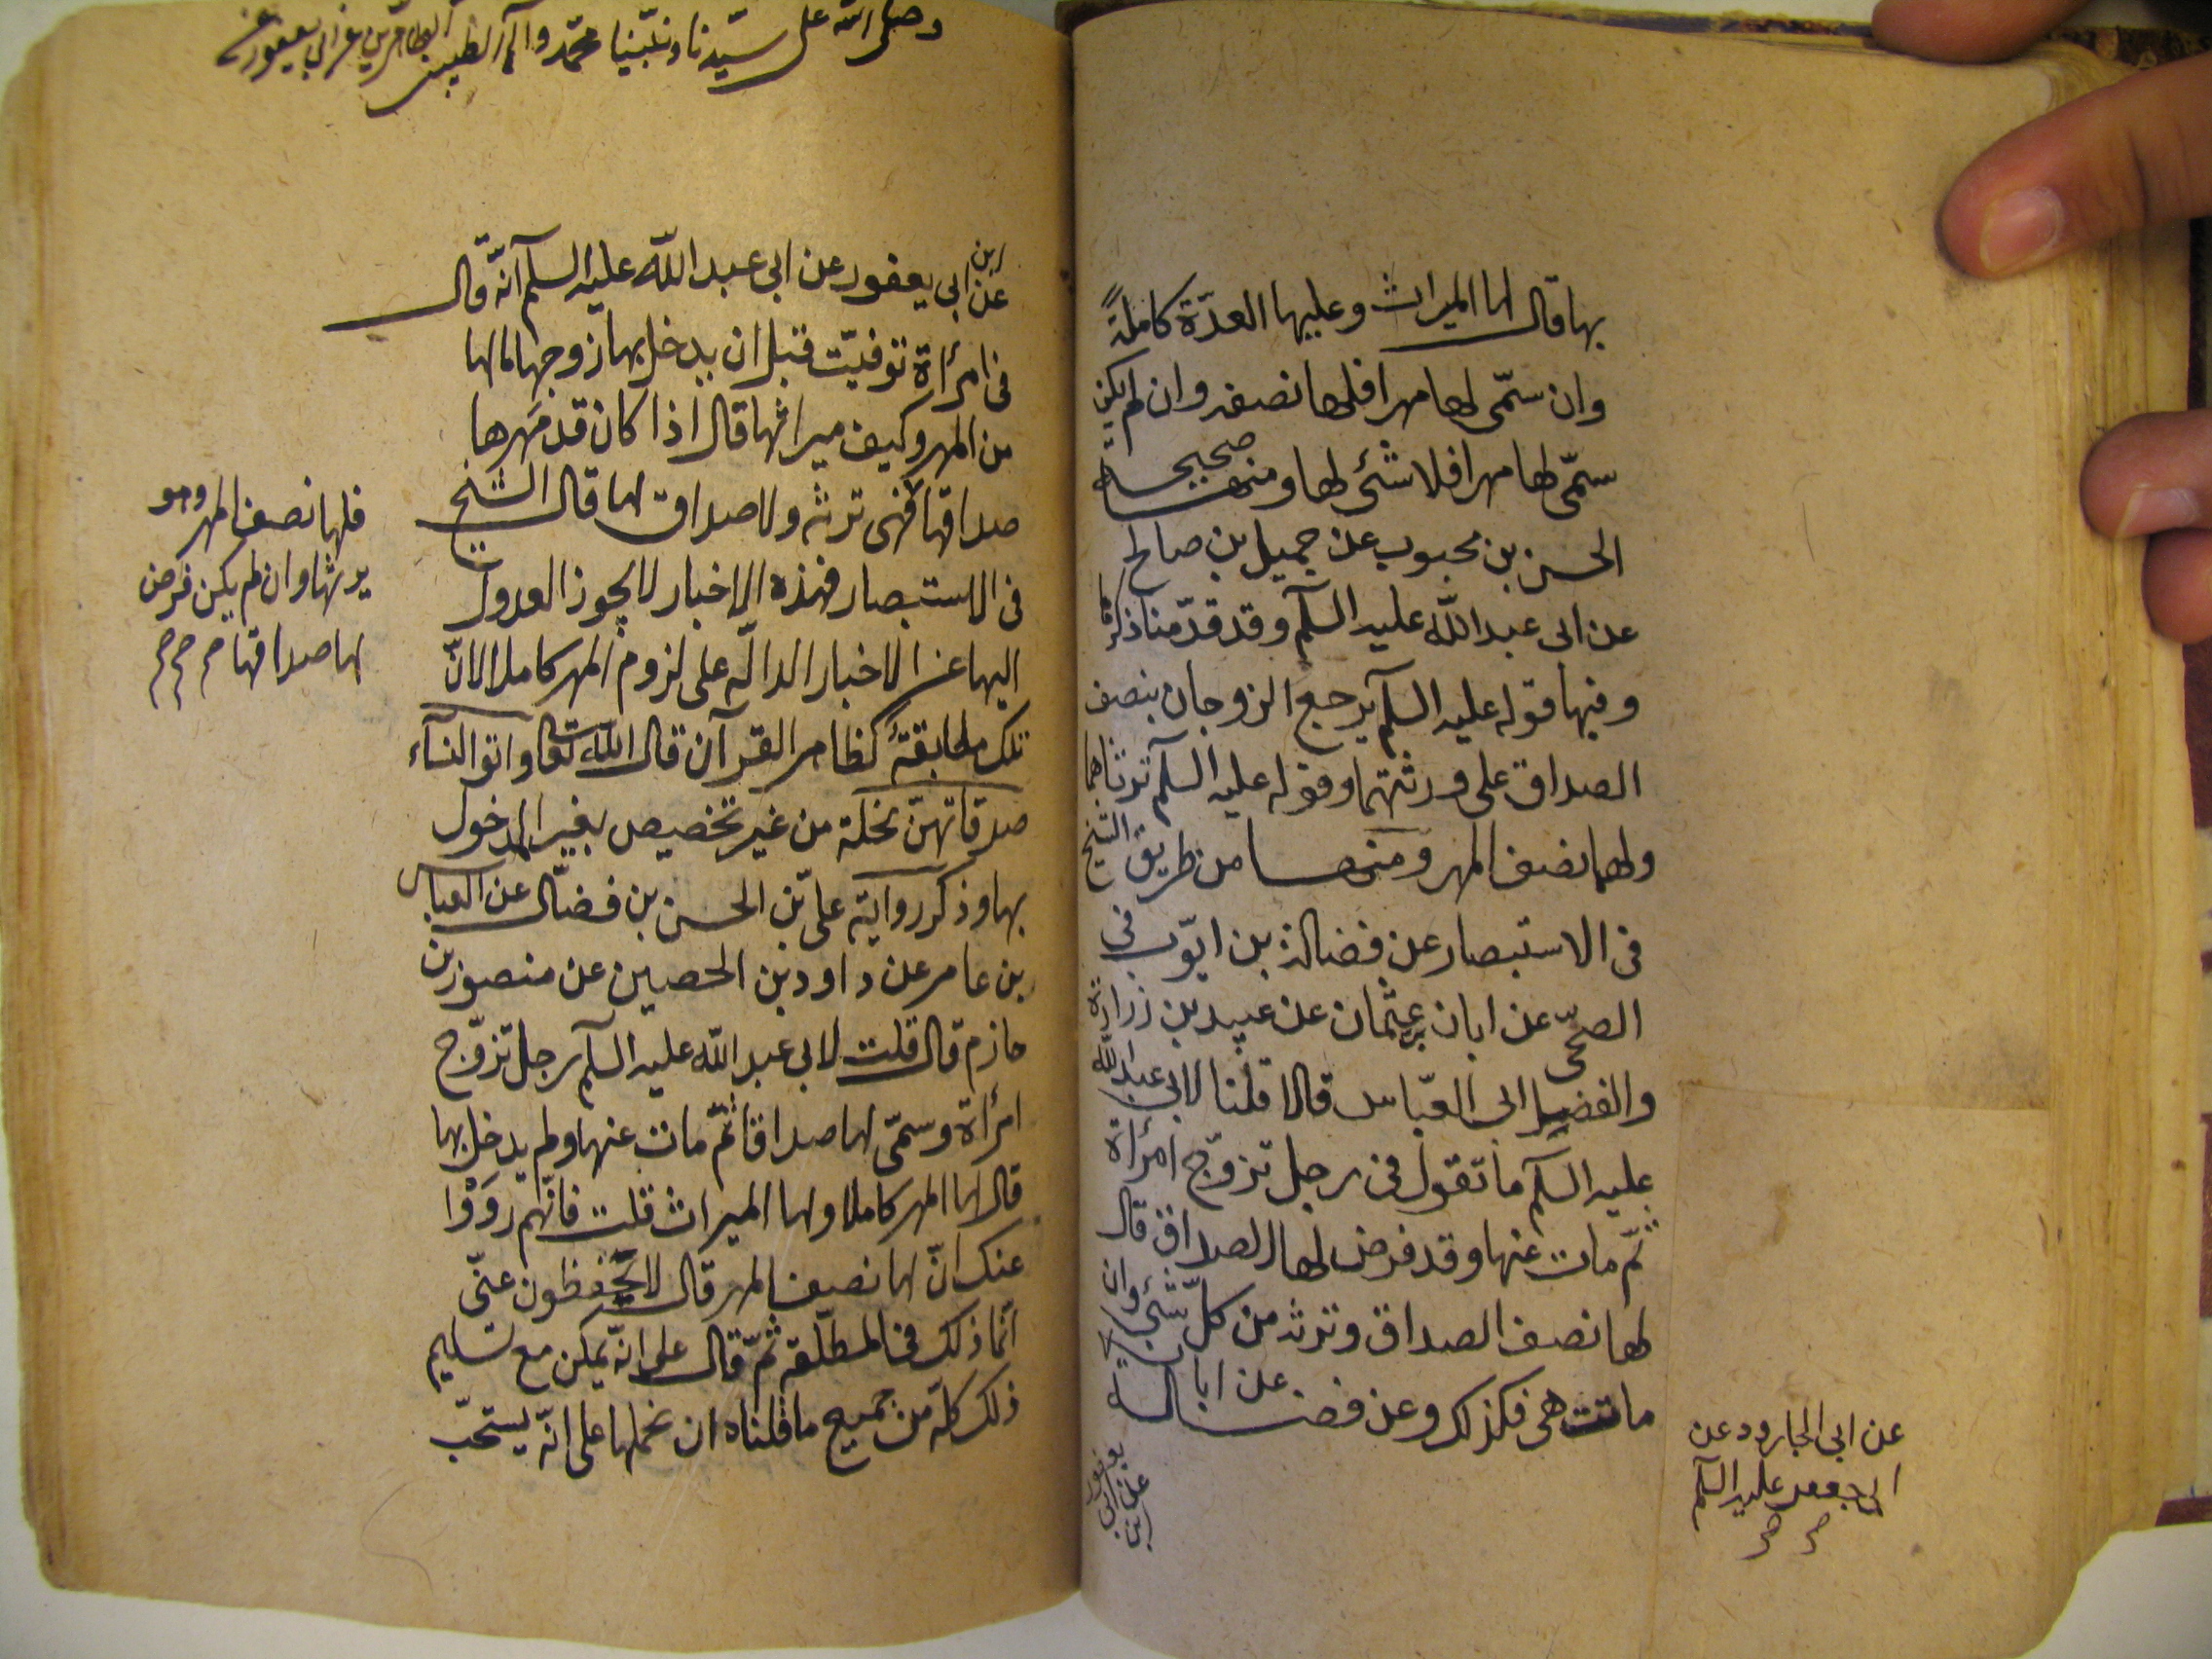 بها قال لها الميراث وعليها العدّة كاملةً
وان سمّى لها مهرا فلها نصفه وان لم يكن
سمّى لها مهرا فلا شئ لها ومنها صحيحة
الحسن بن محبوب عن جميل بن صالح
عن ابى عبد اللّه عليه السلم وقد قدّمنا ذكرها
وفيها قوله عليه السلم يرجع الزوجان بنصف
الصداق على ورثتهما وقوله عليه السلم ترثاهما
ولهما نصف المهر ومنها من طريق الشيخ
فى الاستبصار عن فضالة بن ايّوب فى
الصحّى عن ابان بن عثمان عن عبيد بن زرارة
والفضيل ابى العبّاس قالا قلنا لابى عبد اللّه
عليه السلم ما تقول فى رجل تزوّج امرأة
ثمّ مات عنها وقد فرض لها الصداق قال
لها نصف الصداق وترثه من كلّ شئ وان
ماتت هى فكذلك وعن فضالة عن ابان
عن ابى الجارود عن
ابى جعفر عليه السلم
صح صح
عن ابن
ابى يعفور
وصلى اللّه على سيّدنا ونبيّنا محمّد وآله الطيبين الطاهرين
ابن
عن ابى يعفور عن ابى عبد اللّه عليه السلم انّه قال
فى امرأة توفيّت قبل ان يدخل بها زوجها ما لها
من المهر وكيف ميراثها قال اذا كان قد مهرها
صداقها فهى ترثه ولا صداق لها قال الشيخ
فى الاستبصار فهذه الاخبار لا يجوز العدول
اليها عن الاخبار الدالّه على لزوم المهر كاملا لانّ
تلك مطابقة لظاهر القرآن قال اللّه تعالى واتوا النسآء
صدقاتهنّ نحلة من غير تخصيص بغير المدخول
بها وذكر رواية علىّ بن الحسن بن فضّال عن العباس
بن عامر عن داود بن الحصين عن منصور بن
حازم قال قلت لابى عبد اللّه عليه السلم رجل تزوّج
امرأة وسمّى لها صداقا ثمّ مات عنها ولم يدخل بها
قال لها المهر كاملا ولها الميراث قلت فانّهم رووا
عنك انّ لها نصف المهر قال لا يحفظون عنّى
انّما ذلك فى المطلّقة ثمّ قال على انّه يمكن مع تسليم
ذلك كلّه من جميع ما قلناه ان نحملها على انّه يستحبّ
فلها نصف المهر وهو
يرثها وان لم يكن فرض
لها صداقها صح صح صح